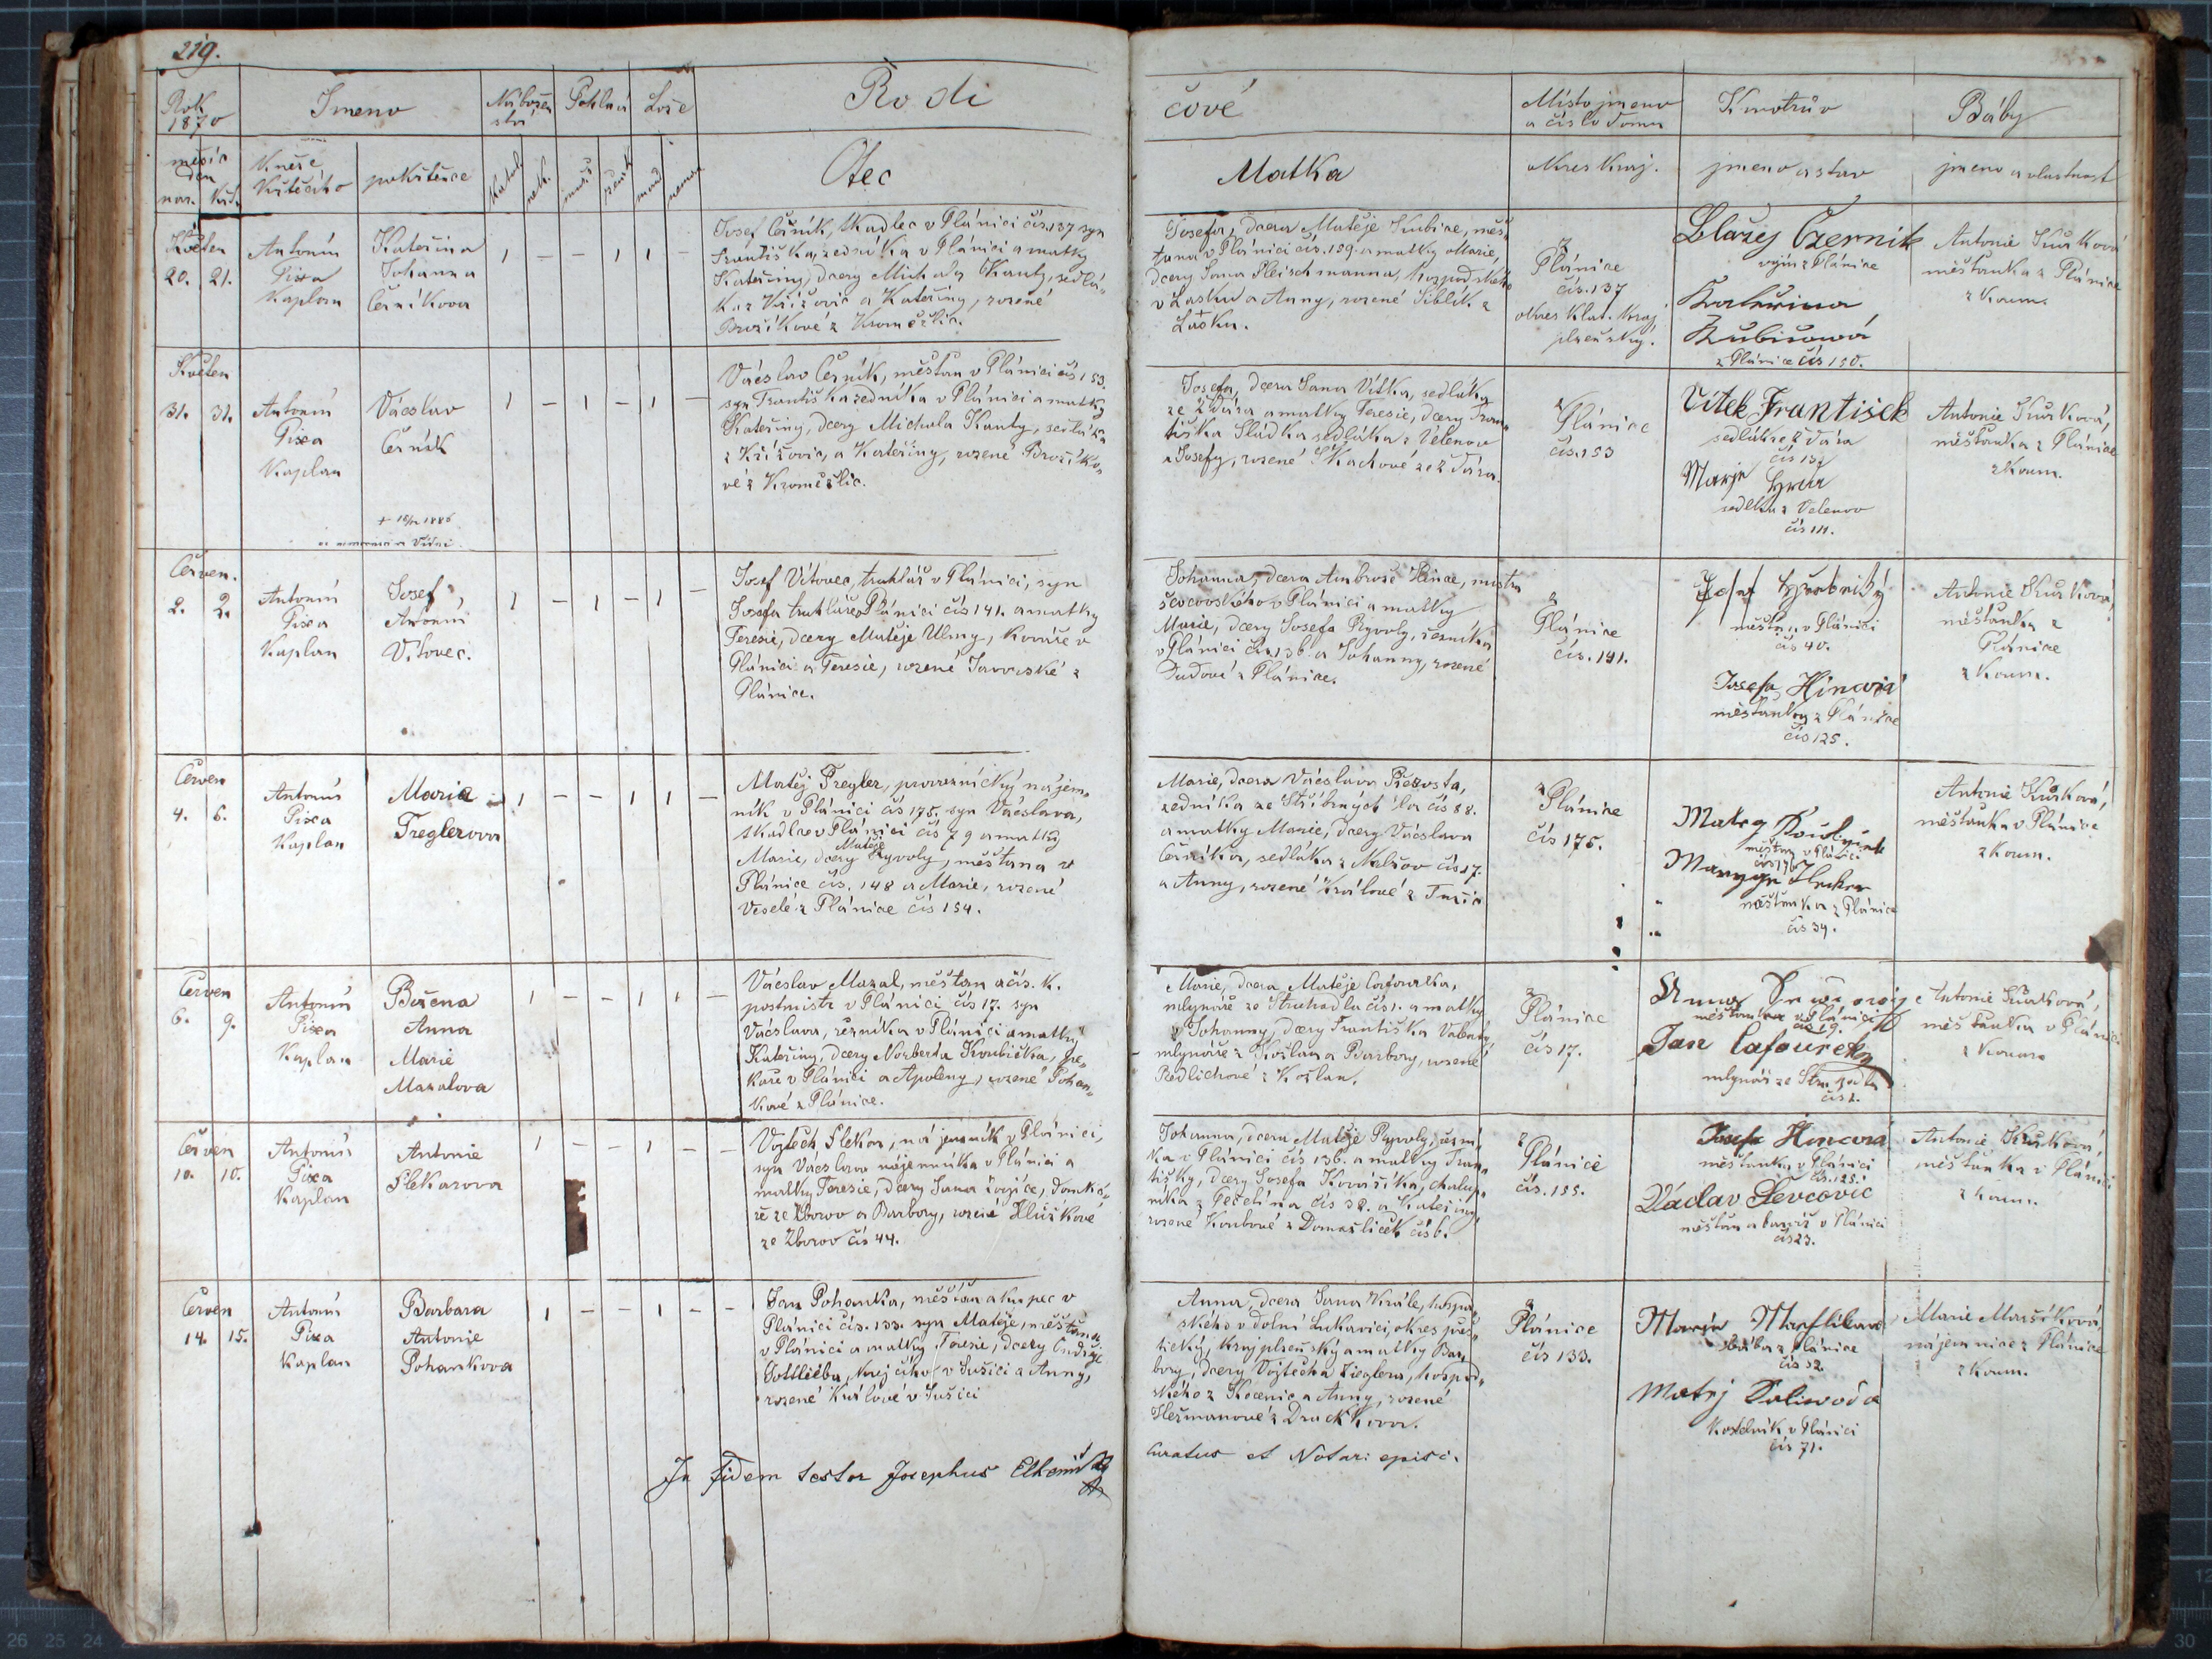 219.
Rok 1870
Jmeno
Nábožen
ství
Pohlaví
Lože
Rodi
čové
Místo jmeno
a číslo domu
Kmotrův
Báby
měsíc
den
nar. křt.
Kněze
Křtícího
pokřtěnce
Otec
Matka
okres kraj.
jmeno a stav
jmeno a vlastnost
Květen
20. 21.
Antonín
Pixa
Kaplan
Kateřina
Johanna
Černíkova
1 – – 1 1 –
Josef Černík, tkadlec v Plánici čís. 137 syn
Františka, zedníka v Plánici a matky
Kateřiny, dcery Michala Kanty, sedlá„
ka z Křížovic a Kateřiny, rozené
Brožíkové z Kroměžlic.
Josefa, dcera Matěje Kubice, měš„
ťana v Plánici čís. 159. a matky Marie,
dcery Jana Fleischmanna, hospodského
v Lašku a Anny, rozené Siblík z
Lašku.
z
Plánice
čís. 137
okres Klat. kraj
plzeňský.
Blažej Czernik
vojín z Plánice
Kateřina
Kubicowá
z Plánice čís 150.
Antonie Kůrková
měšťanka z Plánice
zkoum.
Květen
31. 31.
Antonín
Pixa
Kaplan
Vácslav
Černík
1 – 1 – 1 –
Vácslav Černík, měšťan v Plánici čís 153.
syn Františka zedníka v Plánici a matky
Kateřiny, dcery Michala Kanty, sedláka
z Křížovic, a Kateřiny, rozené Brožíko„
vé z Kroměžlic.
Josefa, dcera Jana Vítka, sedláka
ze Ždára a matky Teresie, dcery Fran„
tiška Sládka sedláka z Velenov
a Josefy, rozené Tkachové ze Ždára.
z
Plánice
čís. 153
Vitek Frantisek
sedlák ze Ždára
Antonie Kůrková,
měšťanka z Plánice
zkoum.
sedlka z Velenov
čís 111.
Červen.
2. 2.
Antonín
Pixa
Kaplan
Josef
Antonín
Vítovec.
1 – 1 – 1 –
Josef Vítovec, truhlář v Plánici, syn
Josefa truhláře v Plánici čís 141. a matky
Teresie, dcery Matěje Ulmy, kováře v
Plánici a Teresie, rozené Javorské z
Plánice.
Johanna, dcera Ambrože Hince, mistra
ševcovského v Plánici a matky
Marie, dcery Josefa Ryvoly, řezníka
v Plánici čís. 136. a Johanny, rozené
Dudové z Plánice.
z
Plánice
čís. 141.
měšťan v Plánici
čís 40.
Josefa Hincová
měšťanka z Plánice
čís 125.
Antonie Kůrková,
měšťanka z
Plánice
zkoum.
Červen
4. 6.
Antonín
Pixa
Kaplan
Maria
Treglerova
1 – – 1 1 –
Matěj Tregler, provaznický nájem„
ník v Plánici čís 175. syn Vácslava,
tkadlce v Plánici čís 79 a matky
Marie, dcery Matěje Ryvoly, měšťana v
Plánice čís. 148 a Marie, rozené
Veselé z Plánice čís 154.
zedníka ze Stříbrných hor čís 88.
a matky Marie, dcery Vácslava
Černíka, sedláka z Nehzov čís 17.
a Anny, rozené Králové z
z
Plánice
čís 175.
Matej
měšťan v Plánici
měšťanka z Plánice
čís 39.
Antonie Kůrková,
měšťanka v Plánice
zkoum.
Červen
6. 9.
Antonín
Pixa
Kaplan
Božena
Anna
Marie
Mazalova
1 – – 1 1 –
Vácslav Mazal, měšťan a čís. k.
postmistr v Plánici čís 17. syn
Vácslava, řezníka v Plánici a matky
Kateřiny, dcery Norberta Kroubička, pe„
kaře v Plánici a Apoleny, rozené Pohan„
kové z Plánice.
Marie, dcera Matěje Cafourka,
mlynáře ze Struhadla čís 1. a matky
Johanny, dcery Františka Valenty,
mlynáře z Kožlan a Barbory, rozené
Redlichové z Kožlan.
z
Plánice
čís 17.
Anna
měšťanka z Plánici
čís 19.
Jan Cafourek
mlynář ze Struhadla
čís 1.
Antonie Kůrková,
měšťanka v Plánici
zkoum.
Červen
10. 10.
Antonín
Pixa
Kaplan
Antonie
Slekarova
1 – – 1 – –
Vojtěch Slekar, nájemník v Plánici,
syn Vácslava nájemníka v Plánici a
matky Teresie, dcery Jana
ze Zborov a Barbory, rozené
ze Zborov čís 44.
Johanna, dcera Matěje Ryvoly, řezní„
ka v Plánici čís 136. a matky Fran„
tišky, dcery Josefa Kovaříka, chalup„
níka z Pečetína čís 32. a Kateřiny,
rozené Koubové z Domažliček čís 6.
z
Plánice
čís. 155.
Josefa Hincová
měšťanka v Plánici
čís. 125.
Václav Ševcovic
měšťan a barvíř v Plánici
čís 23.
Antonie Kůrková,
měšťanka v Plánici
zkoum.
Červen
14. 15.
Antonín
Pixa
Kaplan
Barbara
Antonie
Pohankova
1 – – 1 – –
Jan Pohanka, měšťan a kupec v
Plánici čís. 133. syn Matěje, měšťana
v Plánici a matky Teresie, dcery Ondřeje
Gottlieba, krejčího v Sušici a Anny,
rozené Králové v Sušici
Anna dcera Jana Krále, hospo„
ského v dolní Lukavici, okres přeš„
tický, kraj plzeňský a matky Bar„
bory, dcery Vojtěcha Zieglera, hospod„
ského z Kocenic a Anny, rozené
Heřmanové z
z
Plánice
čís 133.
z Plánice
čís 32
Matej Kaliwoda
kostelník v Plánici
čís 71.
Marie Maršíková,
nájemnice z Plánice
zkoum.
In fidem testor Josephus
Curatus et Notar: episc.